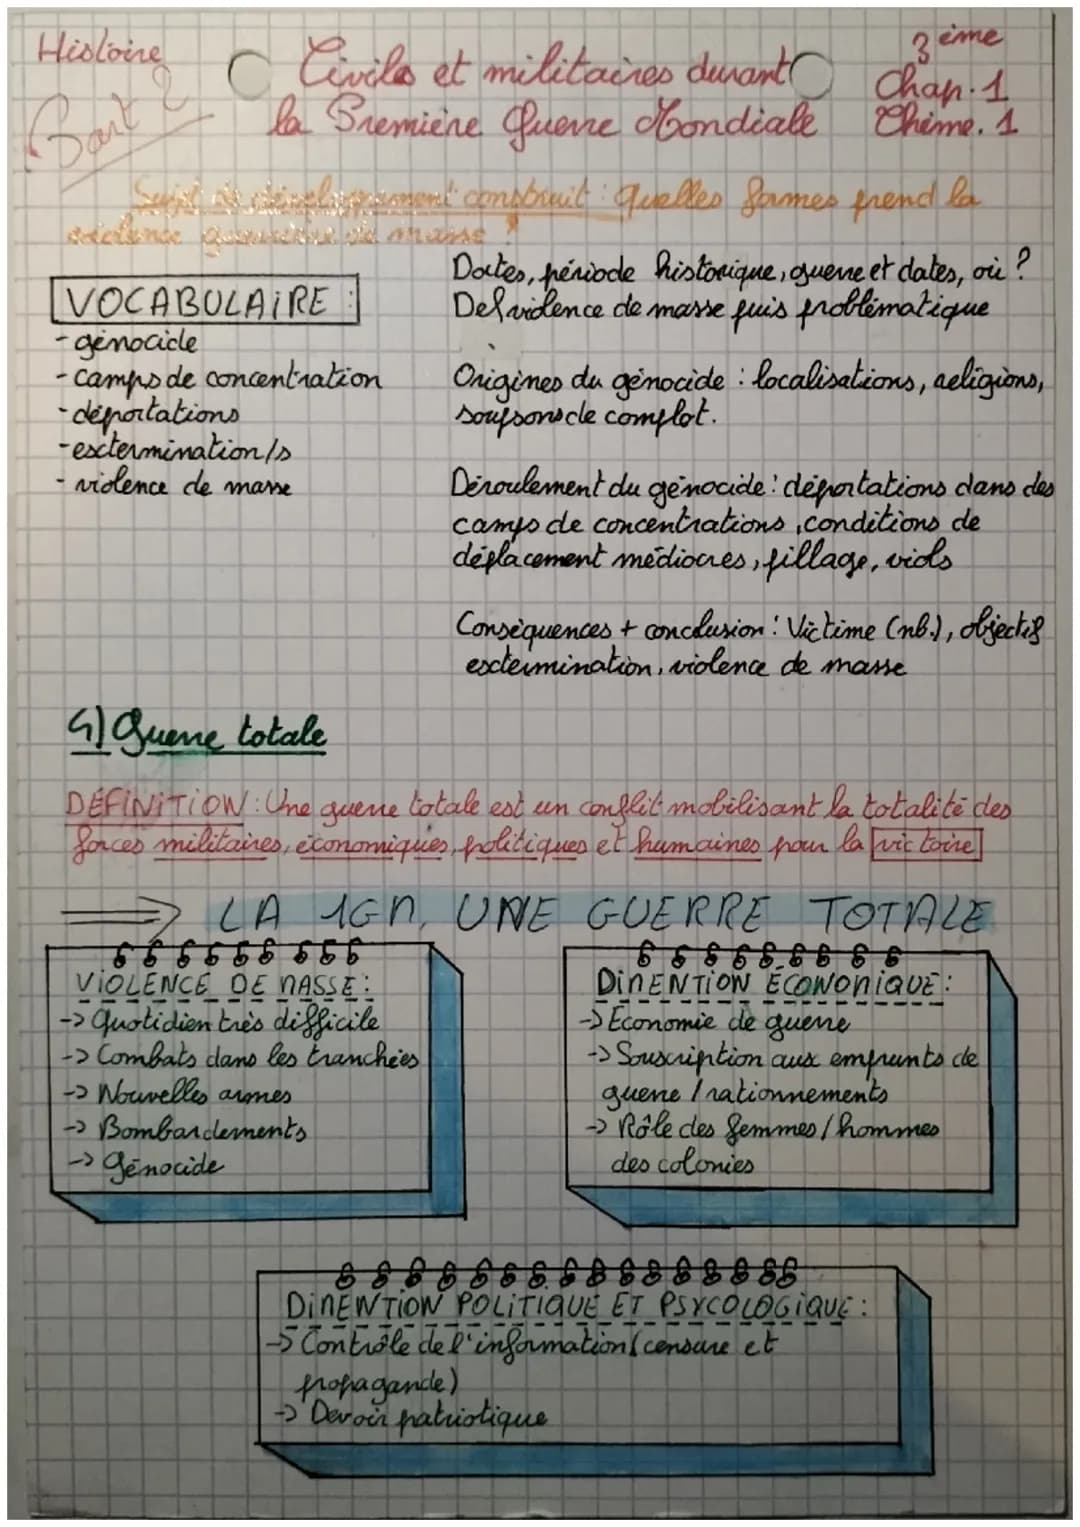 Histoire
Part 2
Civils et militaires durant
la Première Guerre Mondiale
3ème
Chap. 1
Thème. 1
Sujet de développement construit : Quelles formes prend la
violence guerrière de masse ?
VOCABULAIRE :
- génocide
- camps de concentration
- déportations
- extermination/s
- violence de masse
Dates, période historique, guerre et dates, où ?
Def violence de masse puis problématique
Origines du génocide : localisations, religions,
soupsons de complot.
Déroulement du génocide : déportations dans des
camps de concentrations, conditions de
déplacement médiocres, pillage, viols
Conséquences + conclusion : Victime (nb.), objectif
extermination, violence de masse
4) Guerre totale
DÉFINITION : Une guerre totale est un conflit mobilisant la totalité des
forces militaires, économiques, politiques et humaines pour la victoire
=> LA 1GM, UNE GUERRE TOTALE
VIOLENCE DE MASSE :
-> Quotidien très difficile
-> Combats dans les tranchées
-> Nouvelles armes
-> Bombardements
-> Génocide
DIMENTION ÉCONOMIQUE :
-> Economie de guerre
-> Souscription aux emprunts de
guerre / rationnements
-> Rôle des femmes / hommes
des colonies
DIMENTION POLITIQUE ET PSYCOLOGIQUE :
-> Contrôle de l'information (censure et
propagande)
-> Devoir patriotique